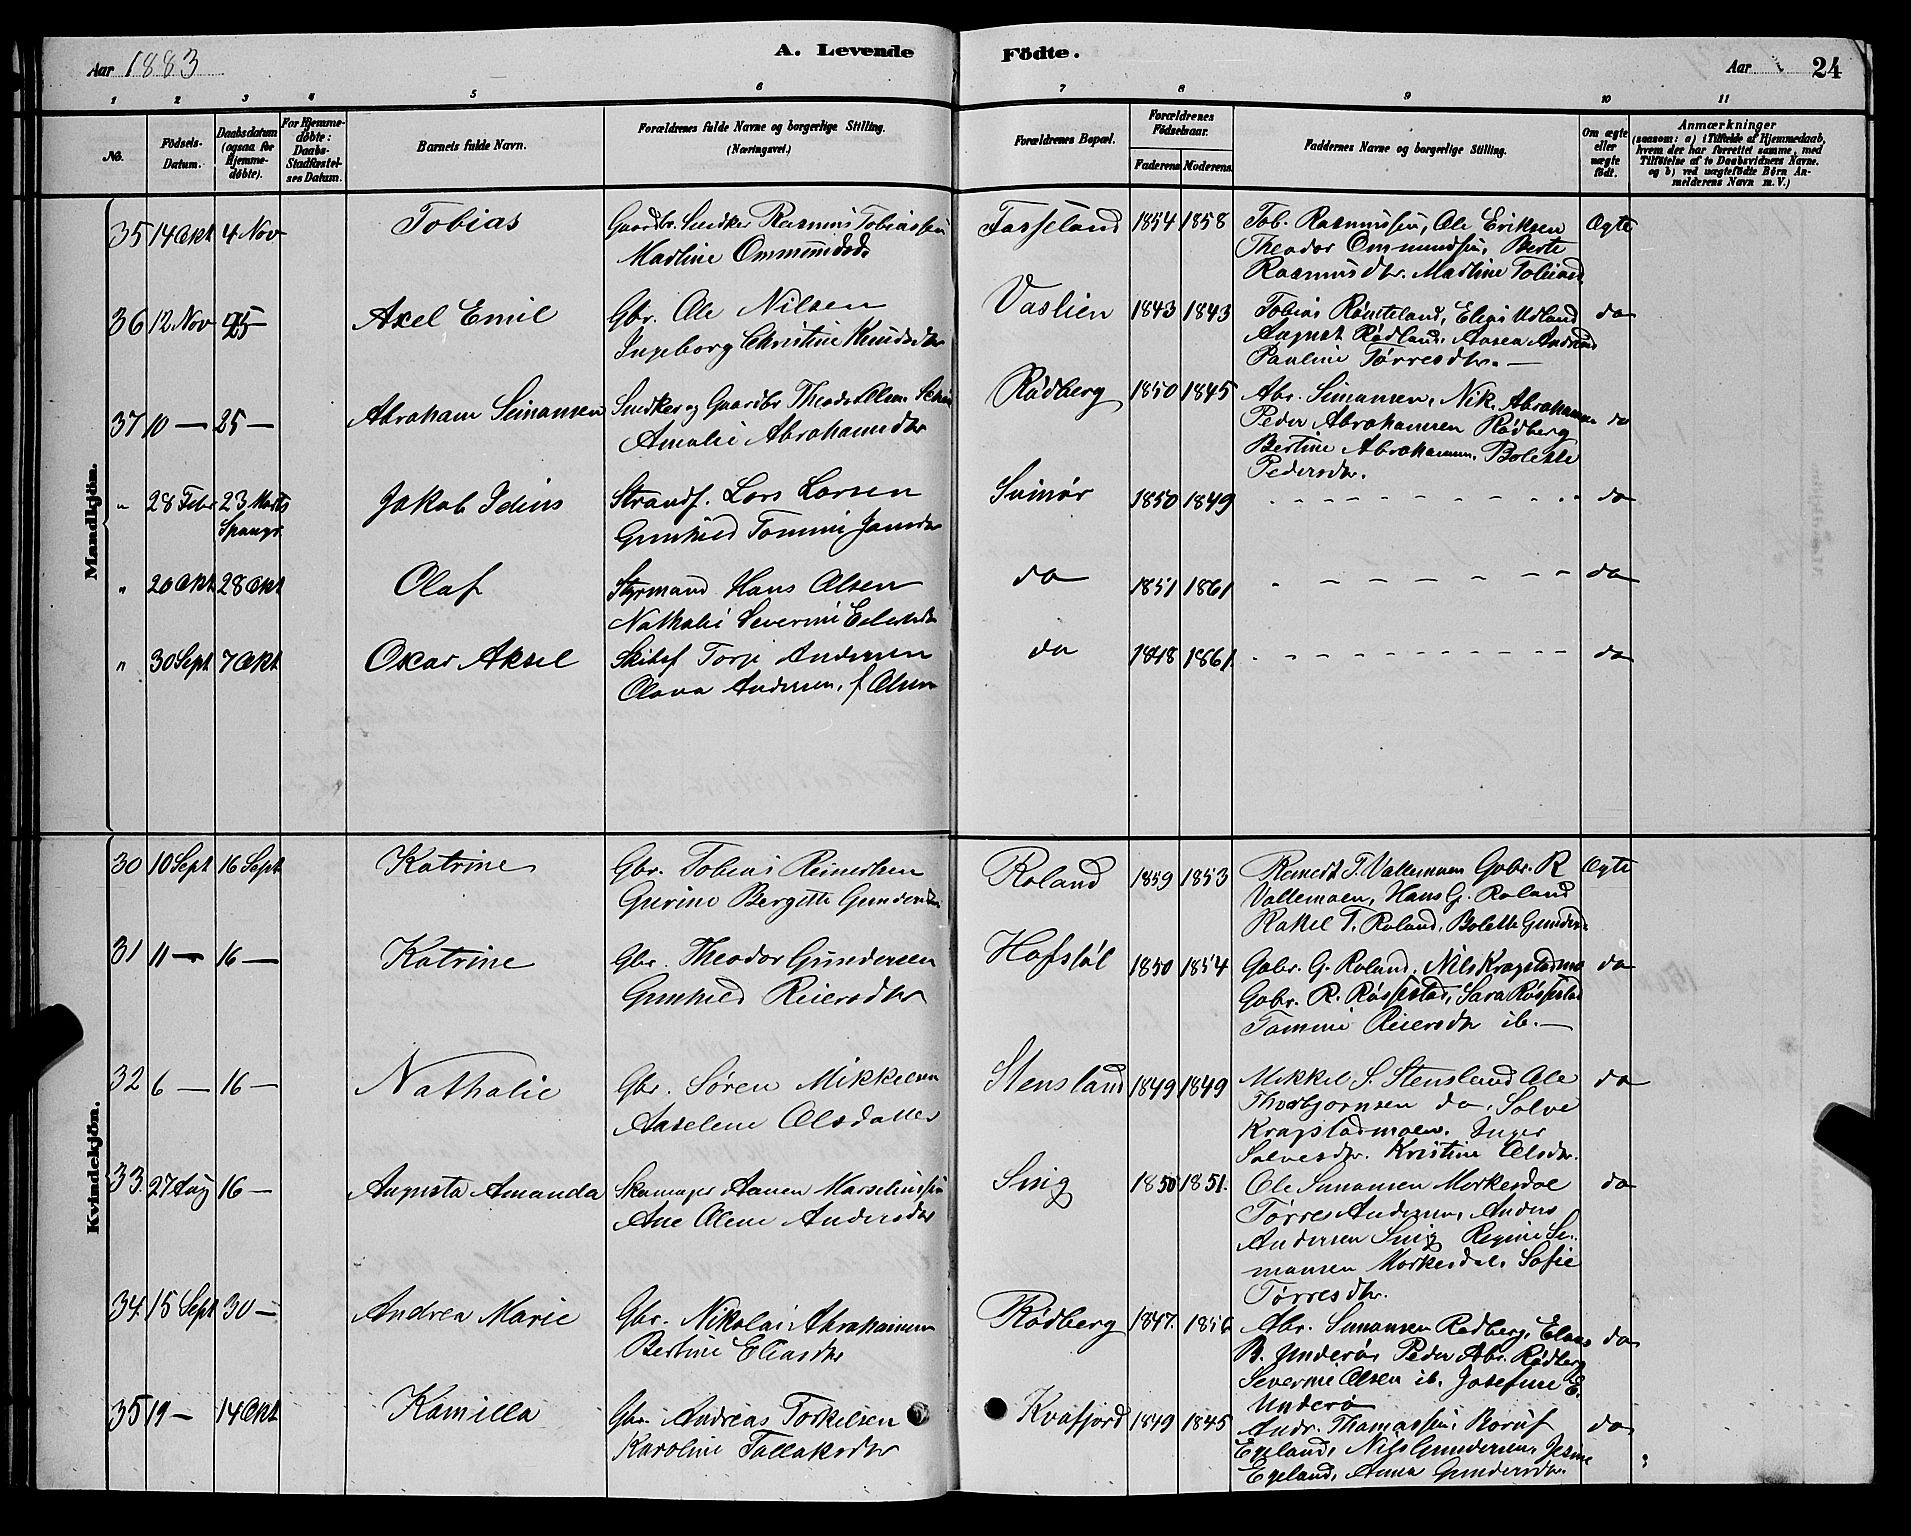 Aar 1883
A. Levende
Födte.
Aar
24
1 2 3 4 5 6 7 8 9 10 11
No.
Födsels-Datum.
Daabsdatum (ogsaa for Hjemme-döbte).
For Hjemme-döbte: Daabs-Stadfæstel-ses Datum.
Barnets fulde Navn.
Forældrenes fulde Navne og borgerlige Stilling.
(Næringsvei.)
Forældrenes Bopæl.
Forældrenes Födselsaar.
Faderens Moderens
Faddernes Navne og borgerlige Stilling.
Om ægte eller uægte födt.
Anmærkninger
(saasom: a) i Tilfælde af Hjemmedaab,
hvem der har forrettet samme, med
Tilföielse af to Daabsvidners Navne.
og b) ved uægtefödte Börn An-
melderens Navn m. V.)
Mandkjön.
35 14 Okt 4 Nov Tobias Gaardbr. Snedker Rasmus Tobiassen
Martine Ommundsd.
Fasseland 1854 1858 Tob. Rasmussen, Ole Eriksen Ægte
Theodor Ommundsen, Berte
Rasmusdtr. Martine Tobiasd
36 12 Nov 25 Axel Emil Gbr. Ole Nilsen
Ingeborg Christine Knudsdtr
Vaslien 1843 1843 Tobias Røiseland, Elias Udland do
August Rødland,
Pauline Tørresdtr. —
37 10 — 25 — Abraham Seimansen Snedker og Gaardbr Theodor Olsen
Amalie Abrahamsdtr
Rødberg 1850 1845 Abr. Simonsen, Nik. Abrahamsen do
Peder Abrahamsen Rødberg
Bertine Abrahamsen, Bolette
Pedersdtr.
" 28 Febr 23 Marts
Spangr.
Jakob Idius Strandf. Lars Larsen
Gunhild Tomine Jansdtr
Svinør 1850 1849 - - - do
" 20 Okt 28 Okt Olaf Styrmand Hans Olsen
Nathalie Severine
do 1851 1861 - - - do
" 30 Sept 7 Okt Oskar Aksel Skibsf Torje Andersen
Olava Andersen, f Olsen
do 1848 1861 - - - do
Kvindekjön.
30 10 Sept 16 Sept Katrine Gbr. Tobias Reinertsen
Gurine Bergitte Gundersdtr
Roland 1859 1853 Reinert T. Vallemoen Gabr. R Ægte
Vallemoen, Hans G. Roland
Rakel T. Roland, Bolette Gunders.
31 11 — 16 — Katrine Gbr. Theodor Gundersen
Gunhild Reiersdtr
Hafsføl 1850 1854 Gabr. G. Roland, Nils Kragstadmo do
Gabr. R. Røsstad, Sara Røsstad
Tomine Reiersdtr ib. —
32 6 — 16 — Nathalie Gbr. Søren Mikkelsen
Aaselene Olsdatter
Stensland 1849 1849 Mikkel S. Stensland Ole do
Thorbjørnsen do, Salve
Kragstadmoen, Inger
Salvesdtr. Kristine Olsdtr.
33. 27 Aug 16 — Augusta Amanda Skomager Aanen Marseliussen
Ane Olene Andersdtr
Snig 1850 1851. Ole Simonsen Morkesdal do
Tørres Andersen, Anders
Andersen Snig Regine Si-
monsen Morkesdal, Sofie
Tørresdtr.
34. 15 Sept 30 — Andrea Marie Gbr. Nikolai Abrahamsen
Bertine Eliasdtr
Rødberg 1847. 1856 Abr. Simonsen Rødberg, Elias do
B. Underø, Peder Abr. Rødberg
Severine Olsen ib. Josefine E.
Underø
35 19 — 14 Okt Kamilla Gbr. Andreas Torkelsen
Karoline Tallaksdtr
Kvafjord 1849 1845 Andr. Thomassen, do
Egeland, Nils Gundersen,
Egeland, Anna Gundersdtr.